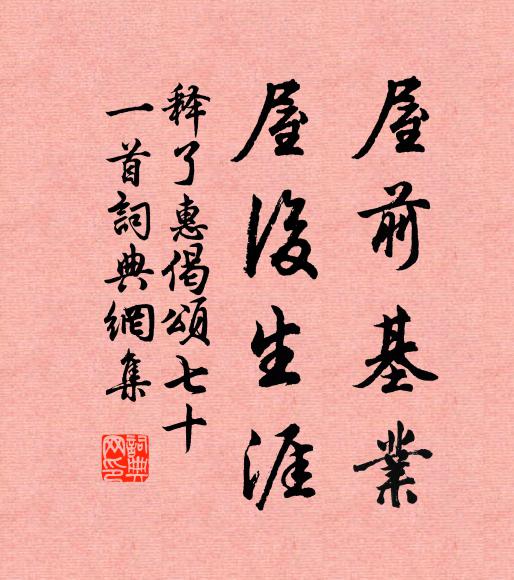 屋前基業
屋後生涯
释了惠偈頌七十
一首詞典網集
詞典网印